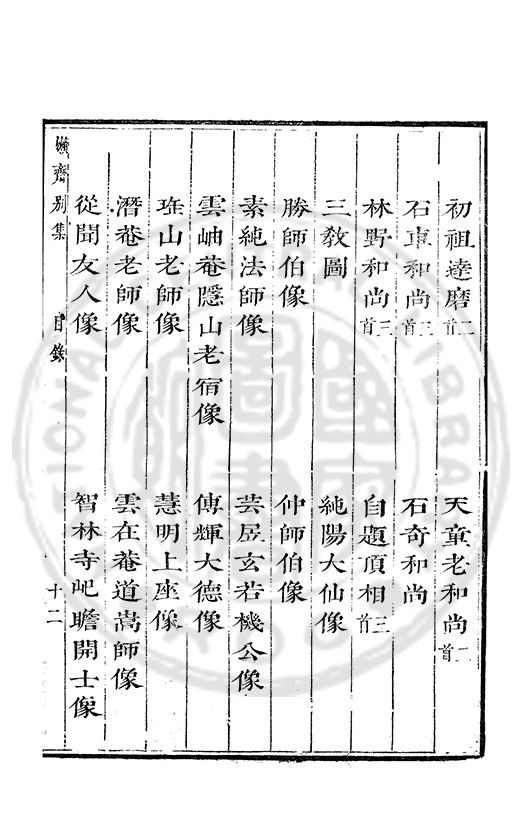 初祖達磨二首 天童老和尚二首
石車和尚三首 石奇和尚
林野和尚三首 自題頂相三首
三教圖 純陽大仙像
勝師伯像 仲師伯像
素純法師像 芸居玄若機公像
雲岫菴隱山老宿像 傳輝大德像
珠山老師像 慧明上座像
潛菴老師像 雲在菴道嵩師像
從聞友人像 智林寺吧瞻開士像
嬾齋別集 目錄 十二